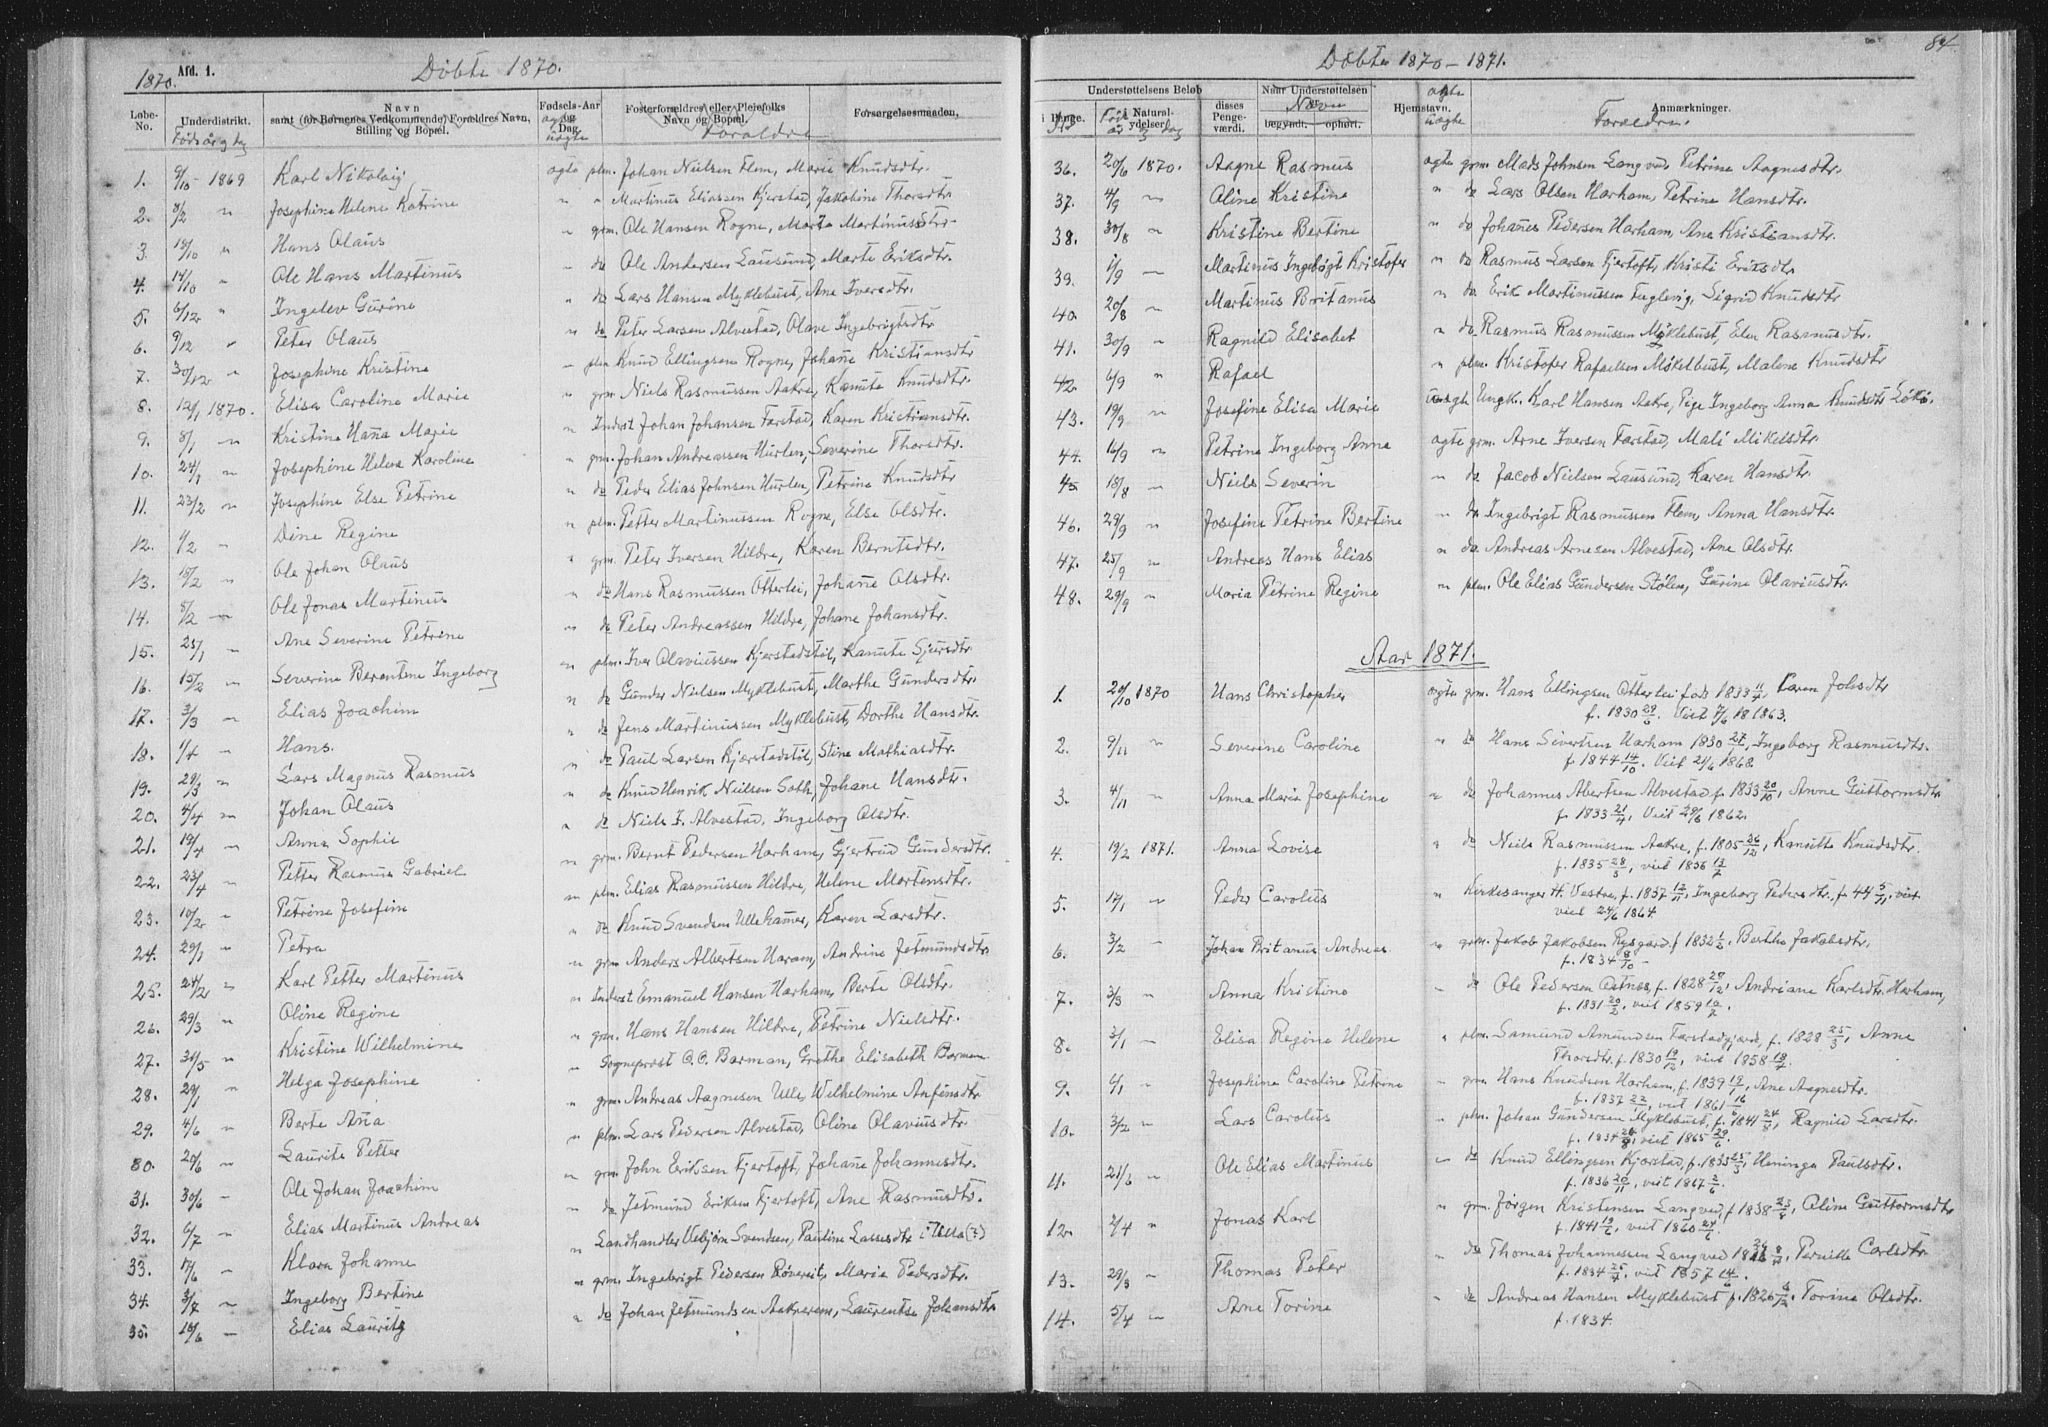 Afd. 1.
1870.
Döbte 1870.
Løbe-No.
Underdistrikt.
Födsår og dag
Navn
samt (for Børnenes Vedkommende) Forældres Navn,
Stilling og Bopæl.
Fødsels-Aar og Dag.
ægte
uægte
Fosterforældres eller Pleiefolks
Navn og Bopæl.
Forsørgelsesmaaden,
Foraldre
1. 9/10 - 1869 Karl Nikolaij ægte plm. Johan Nielsen Flem, Marie Knudsdtr.
2. 8/2 " Josephine Helene Katrine " " Martinus Eliassen Kjerstad, Jakobine Thorsdtr
3. 18/10 " Hans Olaus " grm. Ole Hansen Rogne, Marta Martinusdtr
4. 14/10 " Ole Hans Martinus " do Ole Andersen Lausund, Marte Eriksdtr.
5. 6/12 " Ingelev Gurine " do Lars Hansen Myklebust, Ane Iversdtr.
6. 9/12 " Peter Olaus " do Peter Larsen Alvestad, Olave Ingebrigtsdtr
7. 30/12 " Josephine Kristine " plm Knud Ellingsen Rogne, Johane Kristiansdtr
8. 12/1 1870. Elisa Caroline Marie " grm. Niels Rasmussen Aakre, Kanute Knudsdtr.
9. 8/1 " Kristine Hana Marie " Inderst Johan Johansen Farstad, Karen Kristiansdtr.
10. 24/1 " Josephine Helene Karoline " grm. Johan Andreassen Hurlen, Severine Thorsdtr.
11. 23/2 " Josephine Else Petrine " do Peder Elias Johnsen Hurlen, Petrine Knudsdtr
12. 1/2 " Dine Regine " plm. Petter Martinussen Rogne, Else Olsdtr.
13. 18/2 " Ole Johan Olaus " grm. Peter Iversen Hildre, Karen Berntsdtr.
14. 8/2 " Ole Jonas Martinus " do Hans Rasmussen Otterlei, Johane Olsdtr.
15. 25/1 " Ane Severine Petrine " do Peter Andreassen Hildre, Johane Johansdtr.
16. 15/2 " Severine Berentine Ingeborg " plm. Iver Olaviussen Kjerstadstöl, Kanute Sjursdtr.
17. 3/3 " Elias Joachim " do Gunder Nielsen Myklebust, Marthe Gundersdtr.
18. 1/4 " Hans. " do Jens Martinussen Myklebust, Dorthe Hansdtr.
19. 29/3 " Lars Magnus Rasmus " do Paul Larsen Kjerstadstöl, Stine Mathiasdtr.
20. 4/4 " Johan Olaus " do Knud Henrik Nielsen Soth, Johane Hansdtr.
21. 19/4 " Anna Sophie " do Niels J. Alvestad, Ingeborg Olsdtr.
22. 23/4 " Petter Rasmus Gabriel " grm. Bernt Pedersen Harham, Gjertrud Gundersdtr.
23. 10/2 " Petrine Josefine " plm. Elias Rasmussen Hildre, Helene Martensdtr.
24. 29/1 " Petra " do Knud Svendsen Ullehamer, Karen Larsdtr.
25. 24/2 " Karl Petter Martinus " grm Anders Albertsen Haram, Andrine Jetmundsdtr
26. 29/3 " Oline Regine " Inderst Emanuel Hansen Harham, Berte Olsdtr.
27. 31/5 " Kristine Wilhelmine " grm. Hans Hansen Hildre, Petrine Nielsdtr.
28. 29/1 " Helga Josephine " Sogneprest O.C. Barman, Grethe Elisabeth Barman
29. 4/6 " Berte Ana " grm. Andreas Aagnesen Ulle, Wilhelmine Anfinsdtr
30. 20/6 " Laurits Petter " plm. Lars Pedersen Alvestad, Oline Olavusdtr
31. 30/6 " Ole Johan Joachim " grm. John Eriksen Fjertoft, Johane Johannesdtr.
32. 6/7 " Elias Martinus Andreas " do Jetmund Eriksen Fjertoft, Ane Rasmusdtr.
33. 17/6 " Klara Johanne " Landhandler Vebjörn Svendsen, Pauline Lassesdtr i Ulla (?)
34. 3/7 " Ingeborg Bertine " grm. Ingebrigt Pedersen Rövereit, Marie Pedersdtr.
35. 18/6 " Elias Lauritz " do Johan Jetmundsen Aakrerem, Laurentse Johansdtr
84
Döbte 1870 - 1871.
Understøttelsens Beløb
i Penge.
Natural-ydelser.
disses Penge-værdi.
Naar Understøttelsen
begyndt.
ophørt.
Navn
Hjemstavn.
ægte
uægte
Anmærkninger.
Foraldre.
36. 20/6 1870. Aagne Rasmus ægte grm. Mads Johnsen Langved, Petrine Aagnesdtr.
37. 4/9 " Oline Kristine " do Lars Olsen Harham, Petrine Hansdtr.
38. 30/8 " Kristine Bertine " do Johanes Pedersen Harham, Ane Kristiansdtr.
39. 1/9 " Martinus Ingebrigt Kristofer " do Rasmus Larsen Fjertoft, Kristi Eriksdtr
40. 20/8 " Martinus Britanus " do. Erik Martinussen Fuglevig, Sigrid Knudsdtr
41. 30/9 " Ragnild Elisabet " do Rasmus Rasmussen Myklebust, Elen Rasmusdtr.
42. 6/9 " Rafael " plm. Kristofer Rafaelsen Miklebust, Malene Knudsdtr
43. 19/9 " Josefine Elisa Marie uægte Ungk. Karl Hansen Aakre, Pige Ingeborg Anna Knudsdtr Löke.
44. 16/9 " Petrine Ingeborg Anne ægte grm. Arne Iversen Farstad, Mali Mikelsdtr.
45 18/8 " Niels Severin " do Jacob Nielsen Lausund, Karen Hansdtr
46. 29/9 " Josefine Petrine Bertine " do Ingebrigt Rasmussen Flem, Anna Hansdtr.
47. 25/9 " Andreas Hans Elias " do Andreas Arnesen Alvestad, Ane Olsdtr.
48. 29/9 " Maria Petrine Regine " plm. Ole Elias Gundersen Stölen, Gurine Olaviusdtr.
Aar 1871.
1. 20/10 1870 Hans Christopher ægte grm. Hans Ellingsen Otterlei föds 1833 11/4, Karen Johsdtr
f. 1830 29/6. Viet 7/6 18 1863.
2. 9/11 " Severine Caroline " do Hans Sivertsen Harham 1830 27/7, Ingeborg Rasmusdtr.
f. 1844 14/10. Viet 21/6 1868.
3. 4/11 " Anna Maria Josephine " do Johannes Abertsen Alvestad f. 1833 20/10, Anne Guttormsdtr.
f. 1833 21/4, Viet 29/6 1862.
4. 19/2 1871. Anna Lovise " do Niels Rasmussen Aakre, f. 1805 26/12, Kanutte Knudsdtr.
f. 1835 28/3, viet 1856 13/7
5. 17/1 " Peder Carolus " Kirkesanger H. Vestre, f. 1837 12/11, Ingeborg Pedersdtr., f. 44 5/11, viet
viet 24/6 1864
6. 3/2 " Johan Britanus Andreas " grm. Jakob Jakobsen Rysgard f. 1832 1/2, Berthe Jakobsdtr.
f. 1834 8/10 -
7. 3/3 " Anna Kristine " do Ole Pedersen Östnes, f. 1828 28/12, Andriane Karlsdtr. Harham,
f. 1831 20/2, viet 1859 10/7.
8. 3/1 " Elisa Regine Helene " plm. Samund Amundsen Farstadgjerd, f. 1828 25/3, Anne
Thorsdtr. f. 1830 19/12, viet 1858 18/7.
9. 4/1 " Josephine Caroline Petrine " grm. Hans Knudsen Harham, f. 1839 17/1, Ane Aagnesdtr.
f. 1837 22/11, viet 1861 16/6
10. 3/2 " Lars Carolus " plm. Johan Gundersen Myklebust, f. 1841 24/8, Ragnild Larsdtr.
f. 1834 28/9, viet 1865 29/6.
11. 21/6 " Ole Elias Martinus " do Knud Ellingsen Kjerstad, f. 1833 25/3, Heninga Paulsdtr.
f. 1836 20/11, viet 1867 2/6.
12. 2/4 " Jonas Karl " grm. Jörgen Kristensen Langved, f. 1838 23/8, Oline Guttormsdtr
f. 1841 19/6, viet 1860 24/6.
13. 29/3 " Thomas Peter " do Thomas Johannessen Langved, Pernille Carlsdtr.
f. 1834 25/7, viet 1857 14/6.
14. 5/4 " Ane Torine " do Andreas Hansen Myklebust f. 1826 6/12, Torine Olsdtr.
f. 1834.